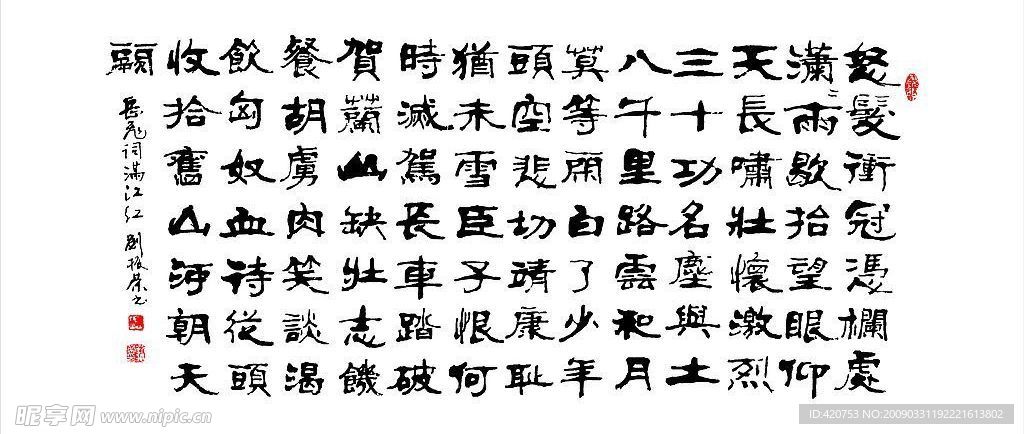 怒髮衝冠憑欄處
瀟〻雨歇抬望眼仰
天長嘯壯懷激烈
三十功名塵與土
八千里路雲和月
莫等閑白了少年
頭空悲切靖康耻
猶未雪臣子恨何
時滅駕長車踏破
賀蘭山缺壯志饑
餐胡虜肉笑談渴
飲匈奴血待從頭
收拾舊山河朝天
闕
岳飛词满江红 劉振榮书
昵享网 www.nipic.cn
ID:420753 NO:20090331192221613802